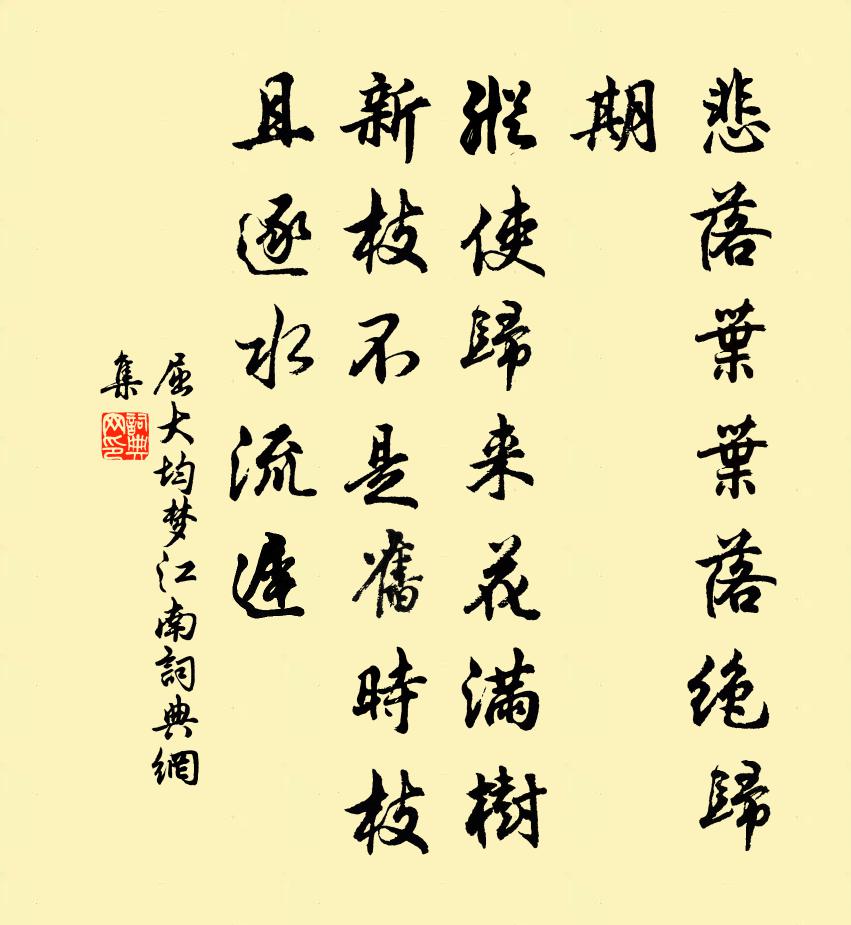 悲落葉葉落絶歸
期
縱使歸来花滿樹
新枝不是舊時枝
且逐水流遲
屈大均梦江南詞典網
集
詞典
网印